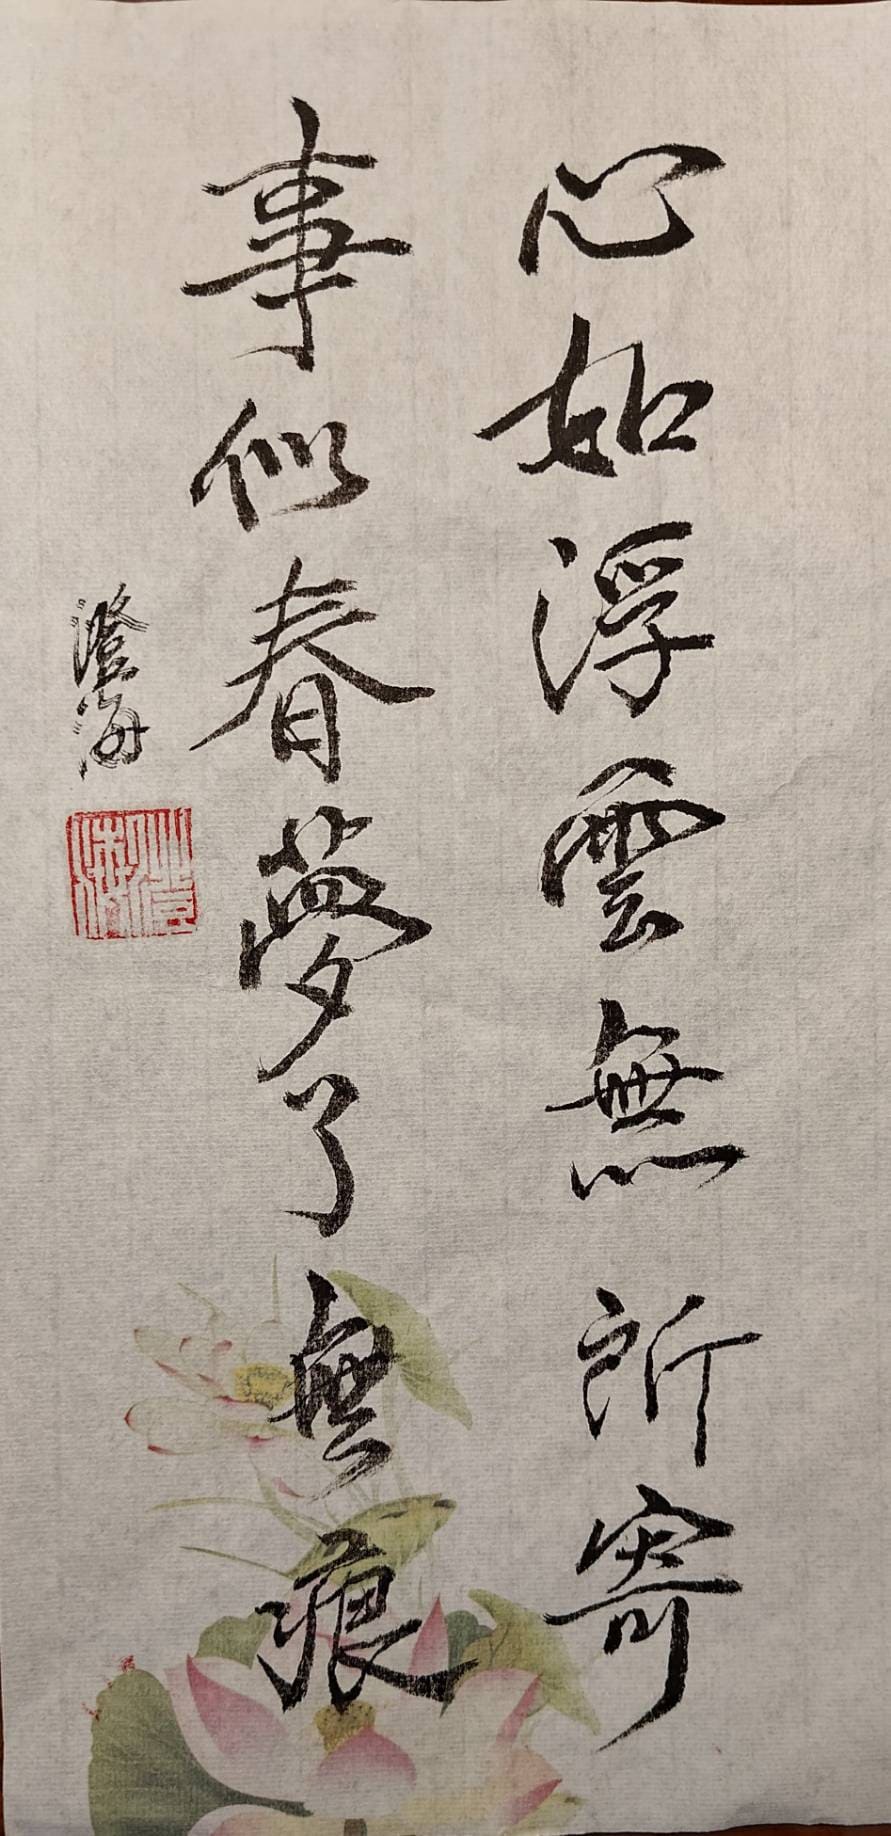 心如浮雲無所寄
事似春夢了無痕
澄海